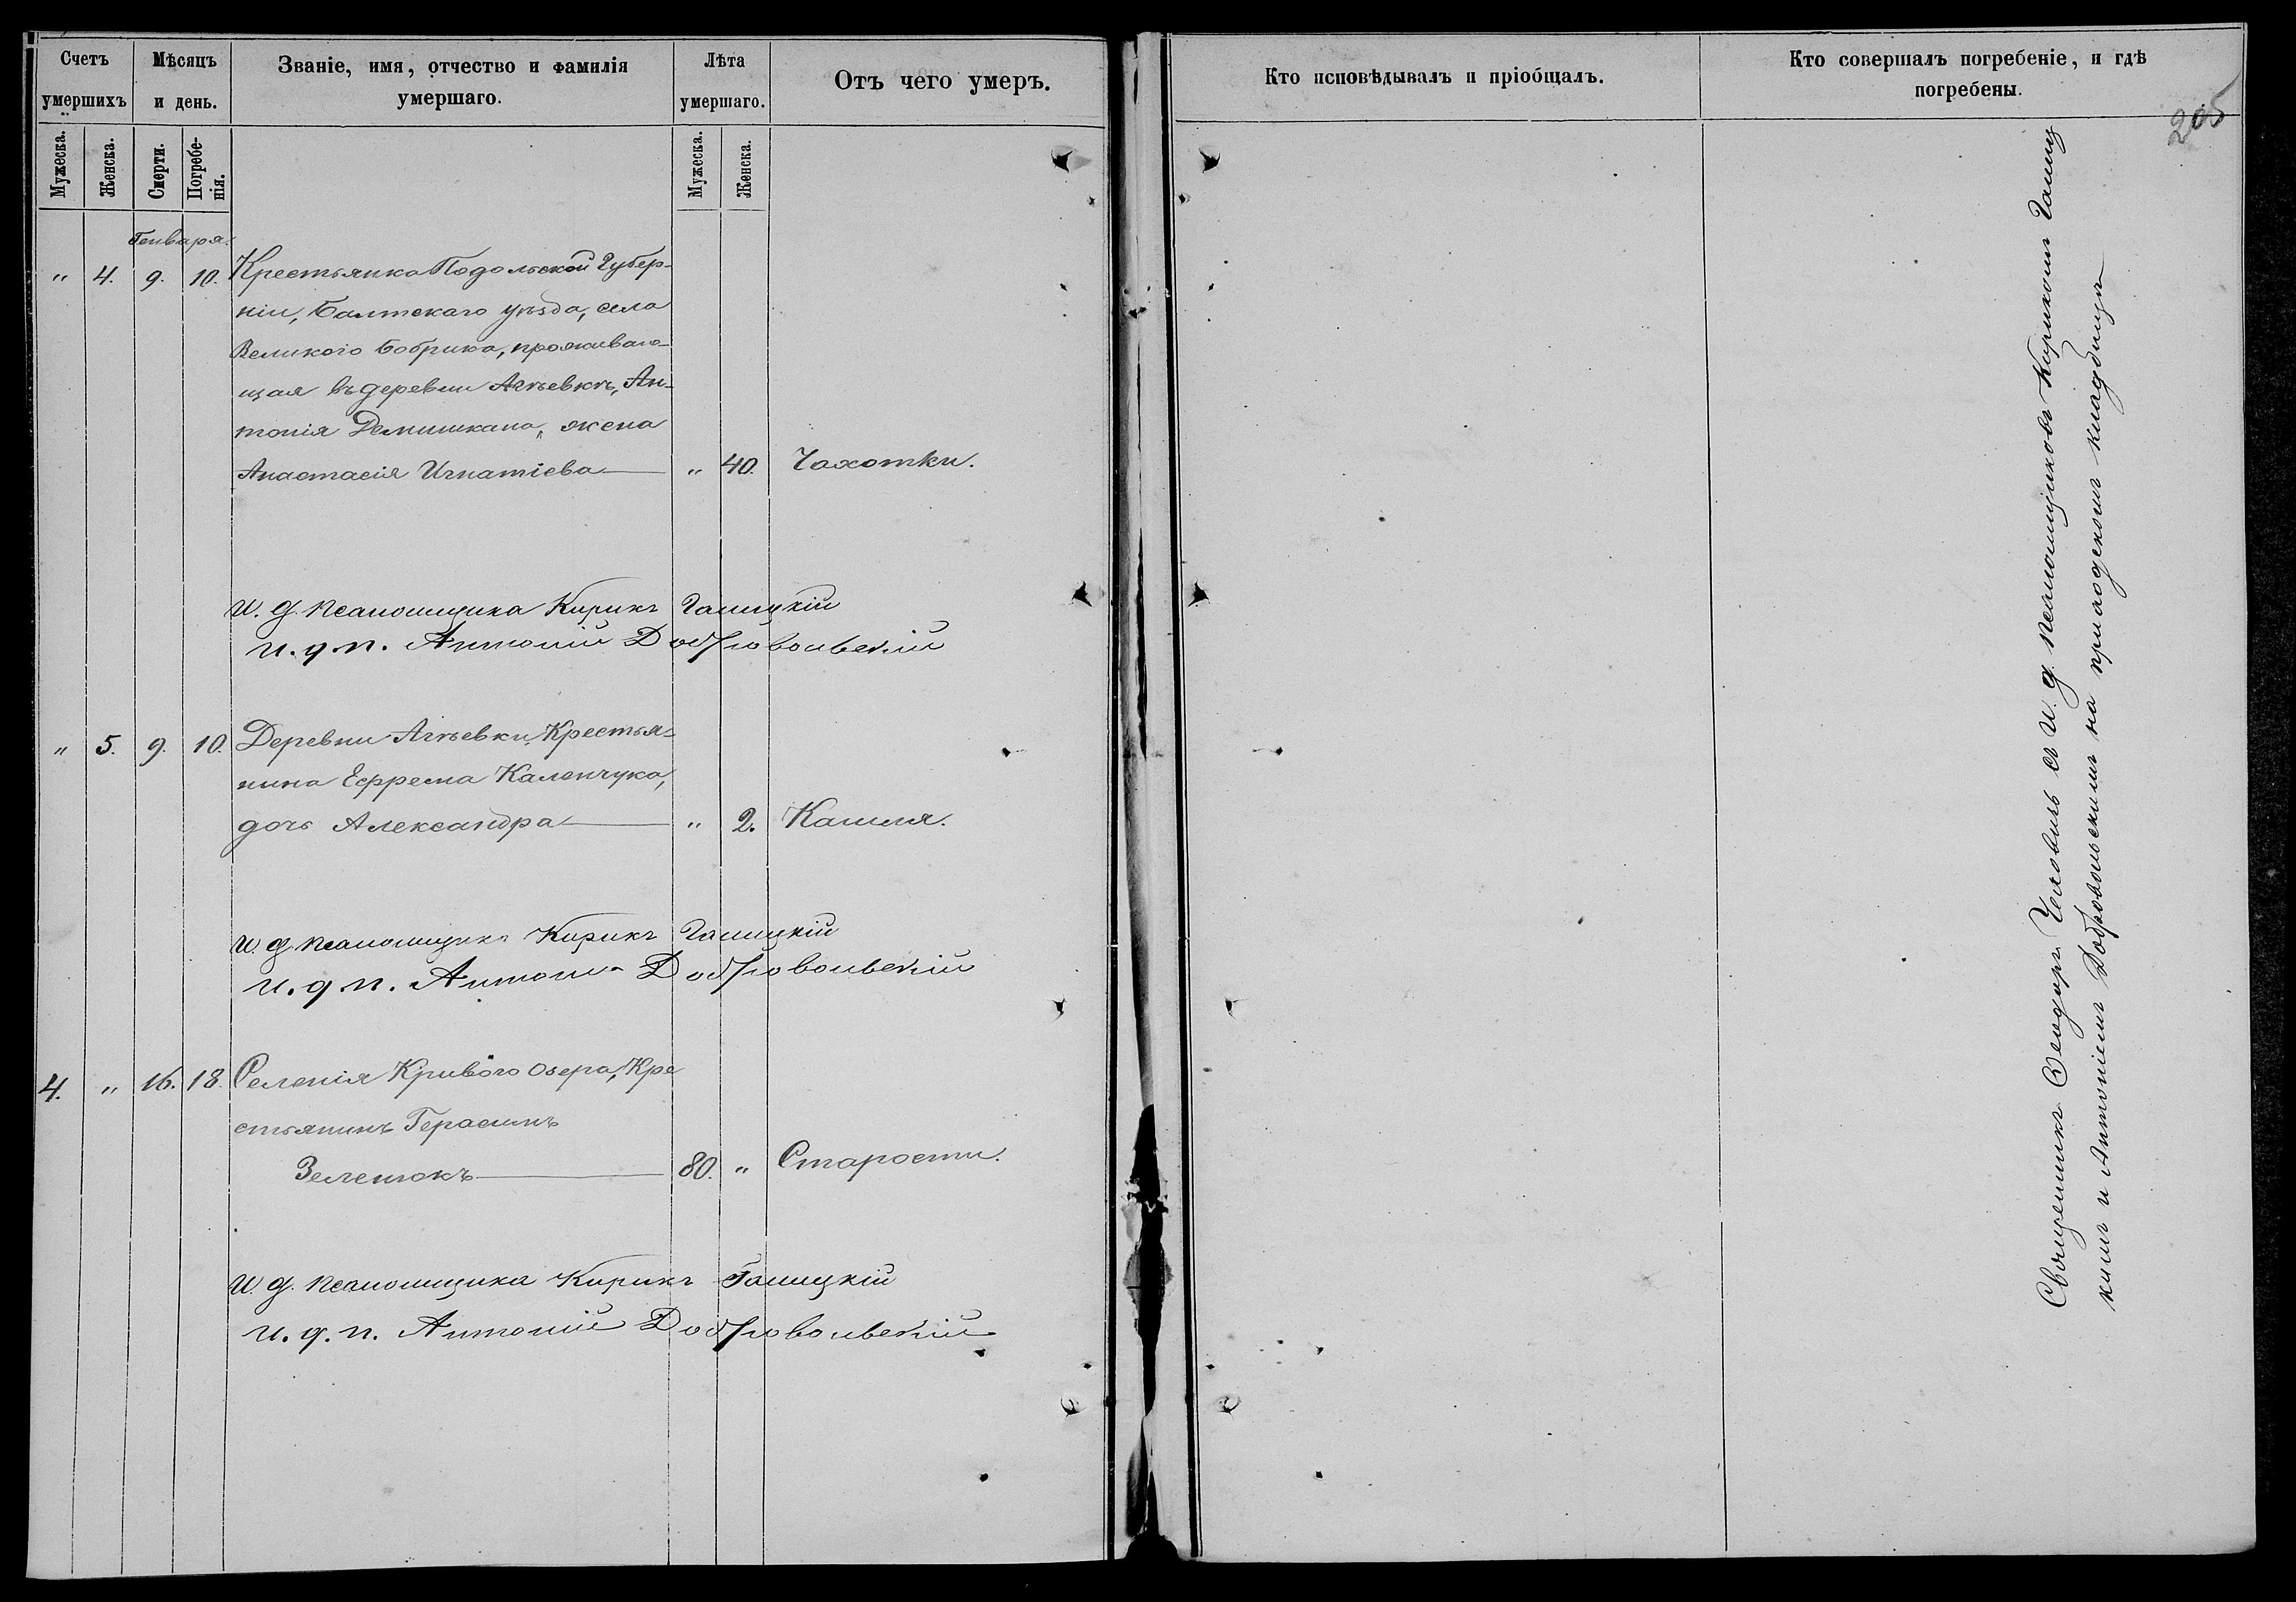 Счетъ умершихъ
Мѣсяцъ и день.
Званіе, имя, отчество и фамилія
умершаго.
Лѣта умершаго.
Отъ чего умеръ.
Мужеска.
Женска.
Смерти.
Погребенія.
Мужеска.
Женска.
Генваря.
" 4. 9. 10. Крестьянка Подольской Губер-
ніи, Балтскаго уѣзда, села
Великого Бобрика, проживаю-
щая въ деревни Агѣевкѣ, Ан-
тонія Демишкана, жена
Анастасія Игнатіева " 40. Чахотки.
И. д. псаломщика Кирикъ Галицкій
и. д. п. Антоній Добровольскій
" 5. 9. 10. Деревни Агѣевки, Крестья-
нина Ефрема Каленчука,
дочь Александра " 2. Кашля.
И. д. псаломщика Кирикъ Галицкій
и. д. п. Антоній Добровольскій
4. " 16. 18. Селенія Криваго Озера, Кре
стьянинъ Герасимъ
Зеленюкъ 80. " Старости.
И. д. псаломщика Кирикъ Галицкій
и. д. п. Антоній Добровольскій
Кто исповѣдывалъ и пріобщалъ.
Кто совершалъ погребеніе, и гдѣ
погребены.
205
Священникъ Ѳеодоръ съ И. д. псаломщиковъ Кирикомъ Галиц
кимъ и Антоніемъ Добровольскимъ на приходскомъ кладбищѣ